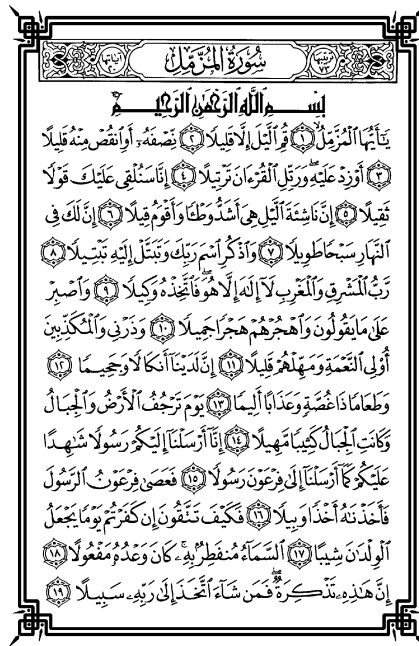 ترتيبها ٧٣ سُورَةُ المُزَّمِّل آياتها ٢٠
بِسْمِ ٱللَّهِ ٱلرَّحْمَٰنِ ٱلرَّحِيمِ
يَٰٓأَيُّهَا ٱلْمُزَّمِّلُ ١ قُمِ ٱلَّيْلَ إِلَّا قَلِيلًا ٢ نِّصْفَهُۥٓ أَوِ ٱنقُصْ مِنْهُ قَلِيلًا
٣ أَوْ زِدْ عَلَيْهِ وَرَتِّلِ ٱلْقُرْءَانَ تَرْتِيلًا ٤ إِنَّا سَنُلْقِى عَلَيْكَ قَوْلًا
ثَقِيلًا ٥ إِنَّ نَاشِئَةَ ٱلَّيْلِ هِىَ أَشَدُّ وَطْـًٔا وَأَقْوَمُ قِيلًا ٦ إِنَّ لَكَ فِى
ٱلنَّهَارِ سَبْحًا طَوِيلًا ٧ وَٱذْكُرِ ٱسْمَ رَبِّكَ وَتَبَتَّلْ إِلَيْهِ تَبْتِيلًا ٨
رَّبُّ ٱلْمَشْرِقِ وَٱلْمَغْرِبِ لَآ إِلَٰهَ إِلَّا هُوَ فَٱتَّخِذْهُ وَكِيلًا ٩ وَٱصْبِرْ
عَلَىٰ مَا يَقُولُونَ وَٱهْجُرْهُمْ هَجْرًا جَمِيلًا ١٠ وَذَرْنِى وَٱلْمُكَذِّبِينَ
أُو۟لِى ٱلنَّعْمَةِ وَمَهِّلْهُمْ قَلِيلًا ١١ إِنَّ لَدَيْنَآ أَنكَالًا وَجَحِيمًا ١٢
وَطَعَامًا ذَا غُصَّةٍ وَعَذَابًا أَلِيمًا ١٣ يَوْمَ تَرْجُفُ ٱلْأَرْضُ وَٱلْجِبَالُ
وَكَانَتِ ٱلْجِبَالُ كَثِيبًا مَّهِيلًا ١٤ إِنَّآ أَرْسَلْنَآ إِلَيْكُمْ رَسُولًا شَٰهِدًا
عَلَيْكُمْ كَمَآ أَرْسَلْنَآ إِلَىٰ فِرْعَوْنَ رَسُولًا ١٥ فَعَصَىٰ فِرْعَوْنُ ٱلرَّسُولَ
فَأَخَذْنَٰهُ أَخْذًا وَبِيلًا ١٦ فَكَيْفَ تَتَّقُونَ إِن كَفَرْتُمْ يَوْمًا يَجْعَلُ
ٱلْوِلْدَٰنَ شِيبًا ١٧ ٱلسَّمَآءُ مُنفَطِرٌۢ بِهِۦ كَانَ وَعْدُهُۥ مَفْعُولًا ١٨
إِنَّ هَٰذِهِۦ تَذْكِرَةٌ فَمَن شَآءَ ٱتَّخَذَ إِلَىٰ رَبِّهِۦ سَبِيلًا ١٩